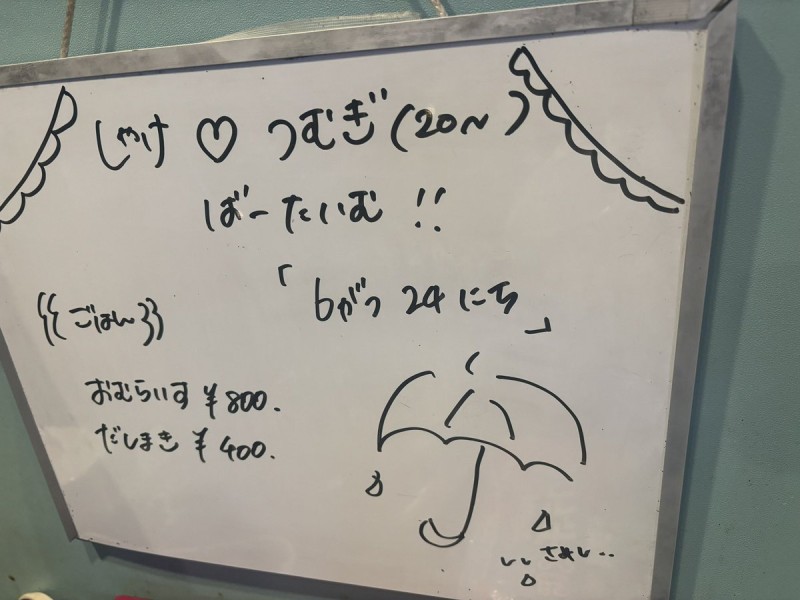 しゃけ♡つむぎ(20~)
ばーたいむ!!
「6がつ24にち」
{{ごはん}}
おむらいす ¥800.
だしまき ¥400.